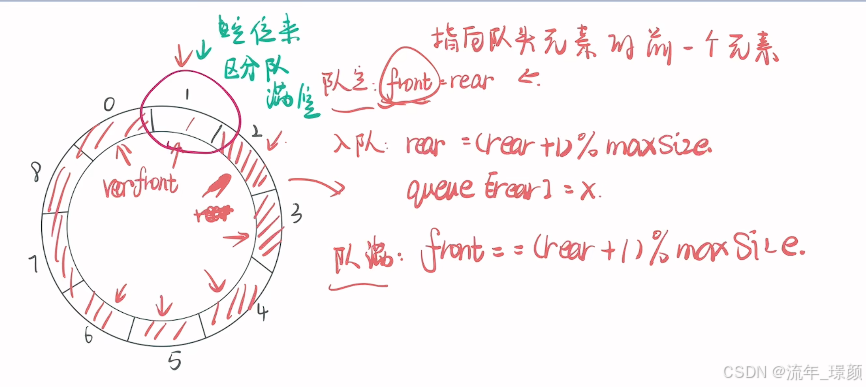 空位来
区分队
满空
指向队头元素的前一个元素
队空：front=rear
入队：rear =(rear+1)%maxSize.
queue[rear]=x.
队满：front==(rear+1)%maxSize.
0
1
2
3
4
5
6
7
8
rear
front
CSDN @流年_璟颜